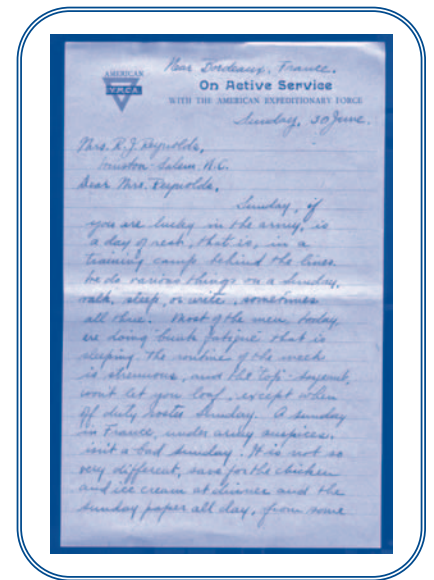 Near Bordeaux, France.
AMERICAN
Y.M.C.A.
On Active Service
WITH THE AMERICAN EXPEDITIONARY FORCE
Sunday, 30 June.
Mrs. R. J. Reynolds,
Winston-Salem, N.C.
Dear Mrs. Reynolds,
Sunday, if
you are lucky in the army, is
a day of rest, that is, in a
training camp behind the lines.
We do various things on a Sunday,
walk, sleep, or write, sometimes
all three. Most of the men today,
are doing "bunk fatigue" that is
sleeping. The routine of the week
is strenuous, and the "top"-sergeant,
won't let you loaf, except when
off duty roster Sunday. A Sunday
in France, under army auspices,
isn't a bad Sunday. It is not so
very different, save for the chicken
and ice cream at dinner and the
Sunday paper all day, from some